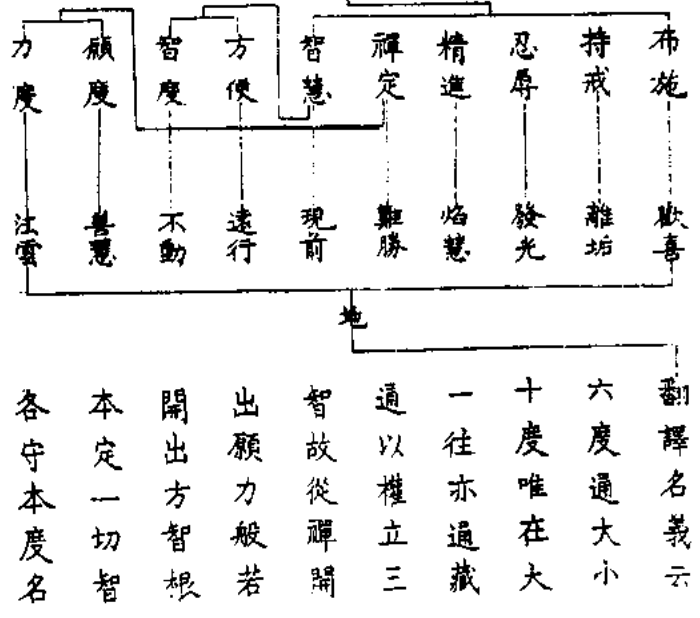 布施
持戒
忍辱
精進
禪定
智慧
方便
智度
願度
力度
歡喜
離垢
發光
焰慧
難勝
現前
遠行
不動
善慧
法雲
地
翻譯名義云
六度通大小
十度唯在大
一往亦通藏
通以權立三
智故從禪開
出願力般若
開出方智根
本定一切智
各守本度名